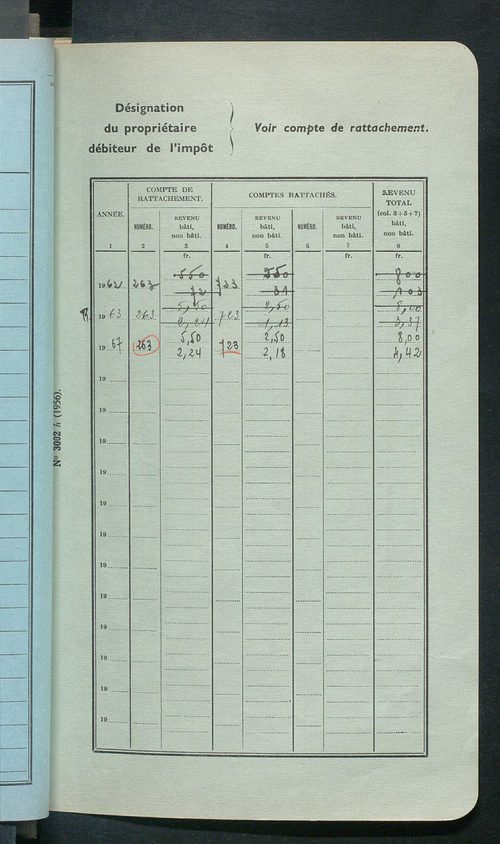 Désignation
du propriétaire
débiteur de l'impôt
Voir compte de rattachement.
ANNÉE.
COMPTE DE
RATTACHEMENT.
COMPTES RATTACHÉS.
REVENU
TOTAL
(col. 3+5+7)
bâti,
non bâti.
NUMÉRO.
REVENU
bâti,
non bâti.
NUMÉRO.
REVENU
bâti,
non bâti.
NUMÉRO.
REVENU
bâti,
non bâti.
1 2 3 4 5 6 7 8
fr. fr. fr. fr.
550 250 800
1962 263 72 723 31 103
5,50 2,50 8,00
R. 1963 263 2,24 723 1,13 3,37
5,50 2,50 8,00
1967 263 2,24 723 2,18 4,42
19
19
19
19
19
19
19
19
19
19
19
19
N° 3002 h (1956).